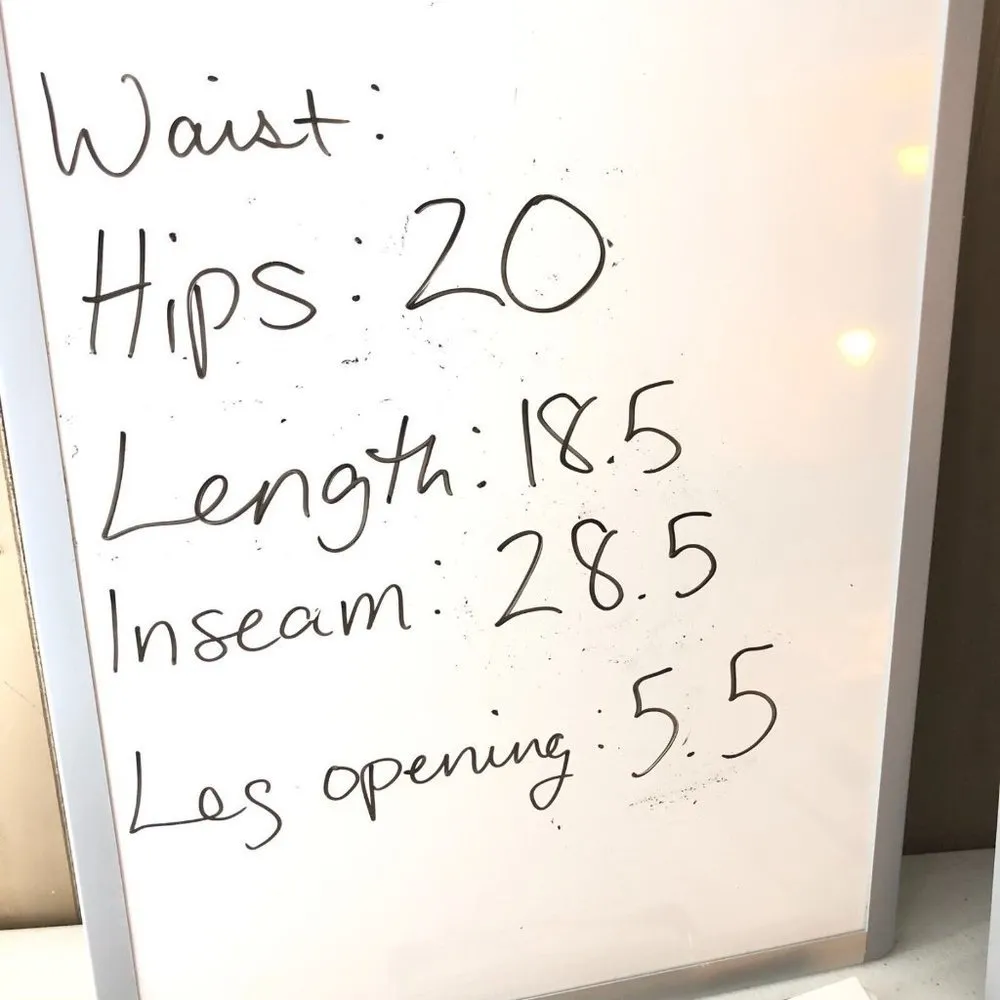 Waist:
Hips: 20
Length: 18.5
Inseam: 28.5
Leg opening: 5.5